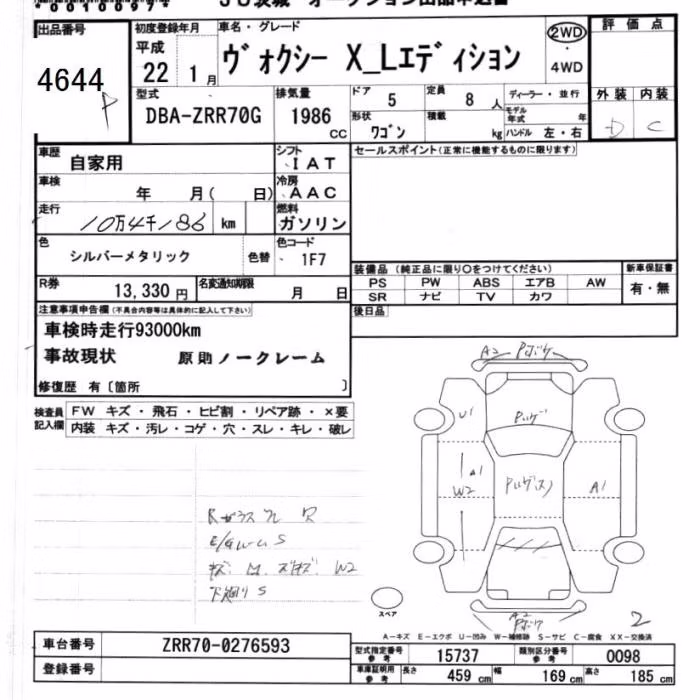 出品番号 初度登録年月 車名・グレード 2WD 評価点
4644 平成 22 1月 ヴォクシー X_Lエディション ・ 4WD
P
型式 排気量 ドア 5 定員 8人 ディーラー・並行 外装 内装
DBA-ZRR70G 1986 CC 形状 ワゴン 積載 kg モデル年式 年 ハンドル 左・右 D C
車歴 自家用 シフト IAT セールスポイント(正常に機能するものに限ります)
車検 年 月( 日) 冷房 AAC
走行 10万4千186 km 燃料 ガソリン
色 シルバーメタリック 色替 色コード 1F7
装備品 (純正品に限り○をつけてください) 新車保証書
R券 13,330円 名変通知期限 月 日
PS PW ABS エアB AW 有・無
SR ナビ TV カワ
注意事項申告欄(不具合内容等は具体的に記入して下さい) 後日品
車検時走行93000km
事故現状 原則ノークレーム
修復歴 有〔箇所 〕
検査員記入欄 FW キズ・飛石・ヒビ割・リペア跡・×要
内装 キズ・汚レ・コゲ・穴・スレ・キレ・破レ
A2
U1
W2 A1 A1
S
W2
下廻り S
スペア
A2
2
A-キズ E-エクボ U-凹み W-補修跡 S-サビ C-腐食 XX-交換済
車台番号 ZRR70-0276593
型式指定番号 参考 15737 類別区分番号 参考 0098
登録番号
車庫証明用 参考 長さ 459 cm 幅 169 cm 高さ 185 cm